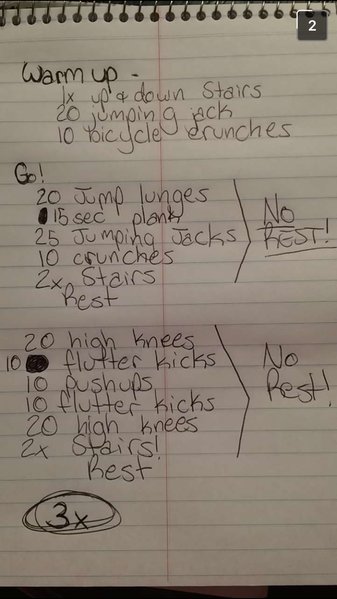 2
Warm up -
1x up & down Stairs
20 jumping jack
10 bicycle crunches
Go!
20 Jump lunges
15 sec plank
25 Jumping Jacks
10 crunches
2x Stairs
Rest
No
REST!
20 high knees
10 flutter kicks
10 pushups
10 flutter kicks
20 high knees
2x Stairs!
Rest
No
Rest!
3x